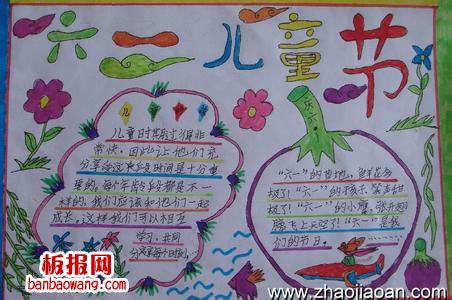 六一儿童节
儿
儿童时期过得非
常快。因此让他们充
分享受这段时间是十分重
要的。每个年龄段都是不一
样的。我们应该和他们一起
成长。这样我们可以相互
学习、共同
分享每个时刻。
庆六一
“六一”的草地,鲜花多
极了!“六一”的孩子,笑声甜
极了!“六一”的小鹰,张开翅
膀飞上天空了!“六一”是我
们的节日。
板报网
banbaowang.com
www.zhaojiaoan.com